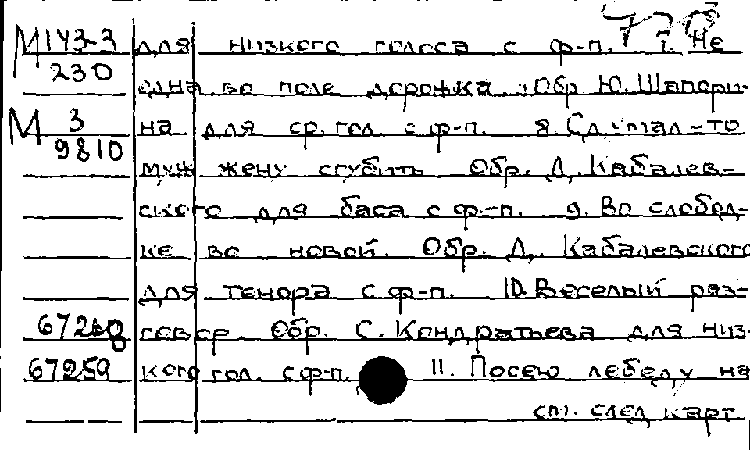 М 143-3 для низкого голоса с ф-п. 7. Не
230 одна во поле дорожка. Обр. Ю. Шапори-
М 3 на для ср. гол. с ф-п. 8. Сдумал-то
9810 муж жену сгубить Обр. Д. Кабалев-
ского для баса с ф-п. 9. Во слобод-
ке во новой. Обр. Д. Кабалевского
для тенора с ф-п. 10. Веселый раз-
говор Обр. С. Кондратьева для низ-
67259 кого гол. с ф-п. 11. Посею лебеду на
см. след карт.